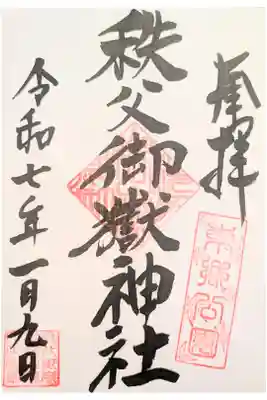 奉拝
東郷公園
秩父御嶽神社
令和七年一月九日